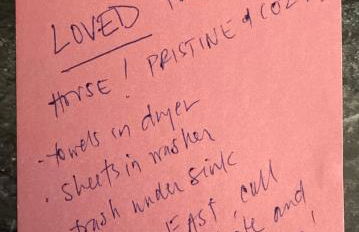 LOVED
HOUSE! PRISTINE & COZY
- towels in dryer
• sheets in washer
trash under sink
EAST, call
and